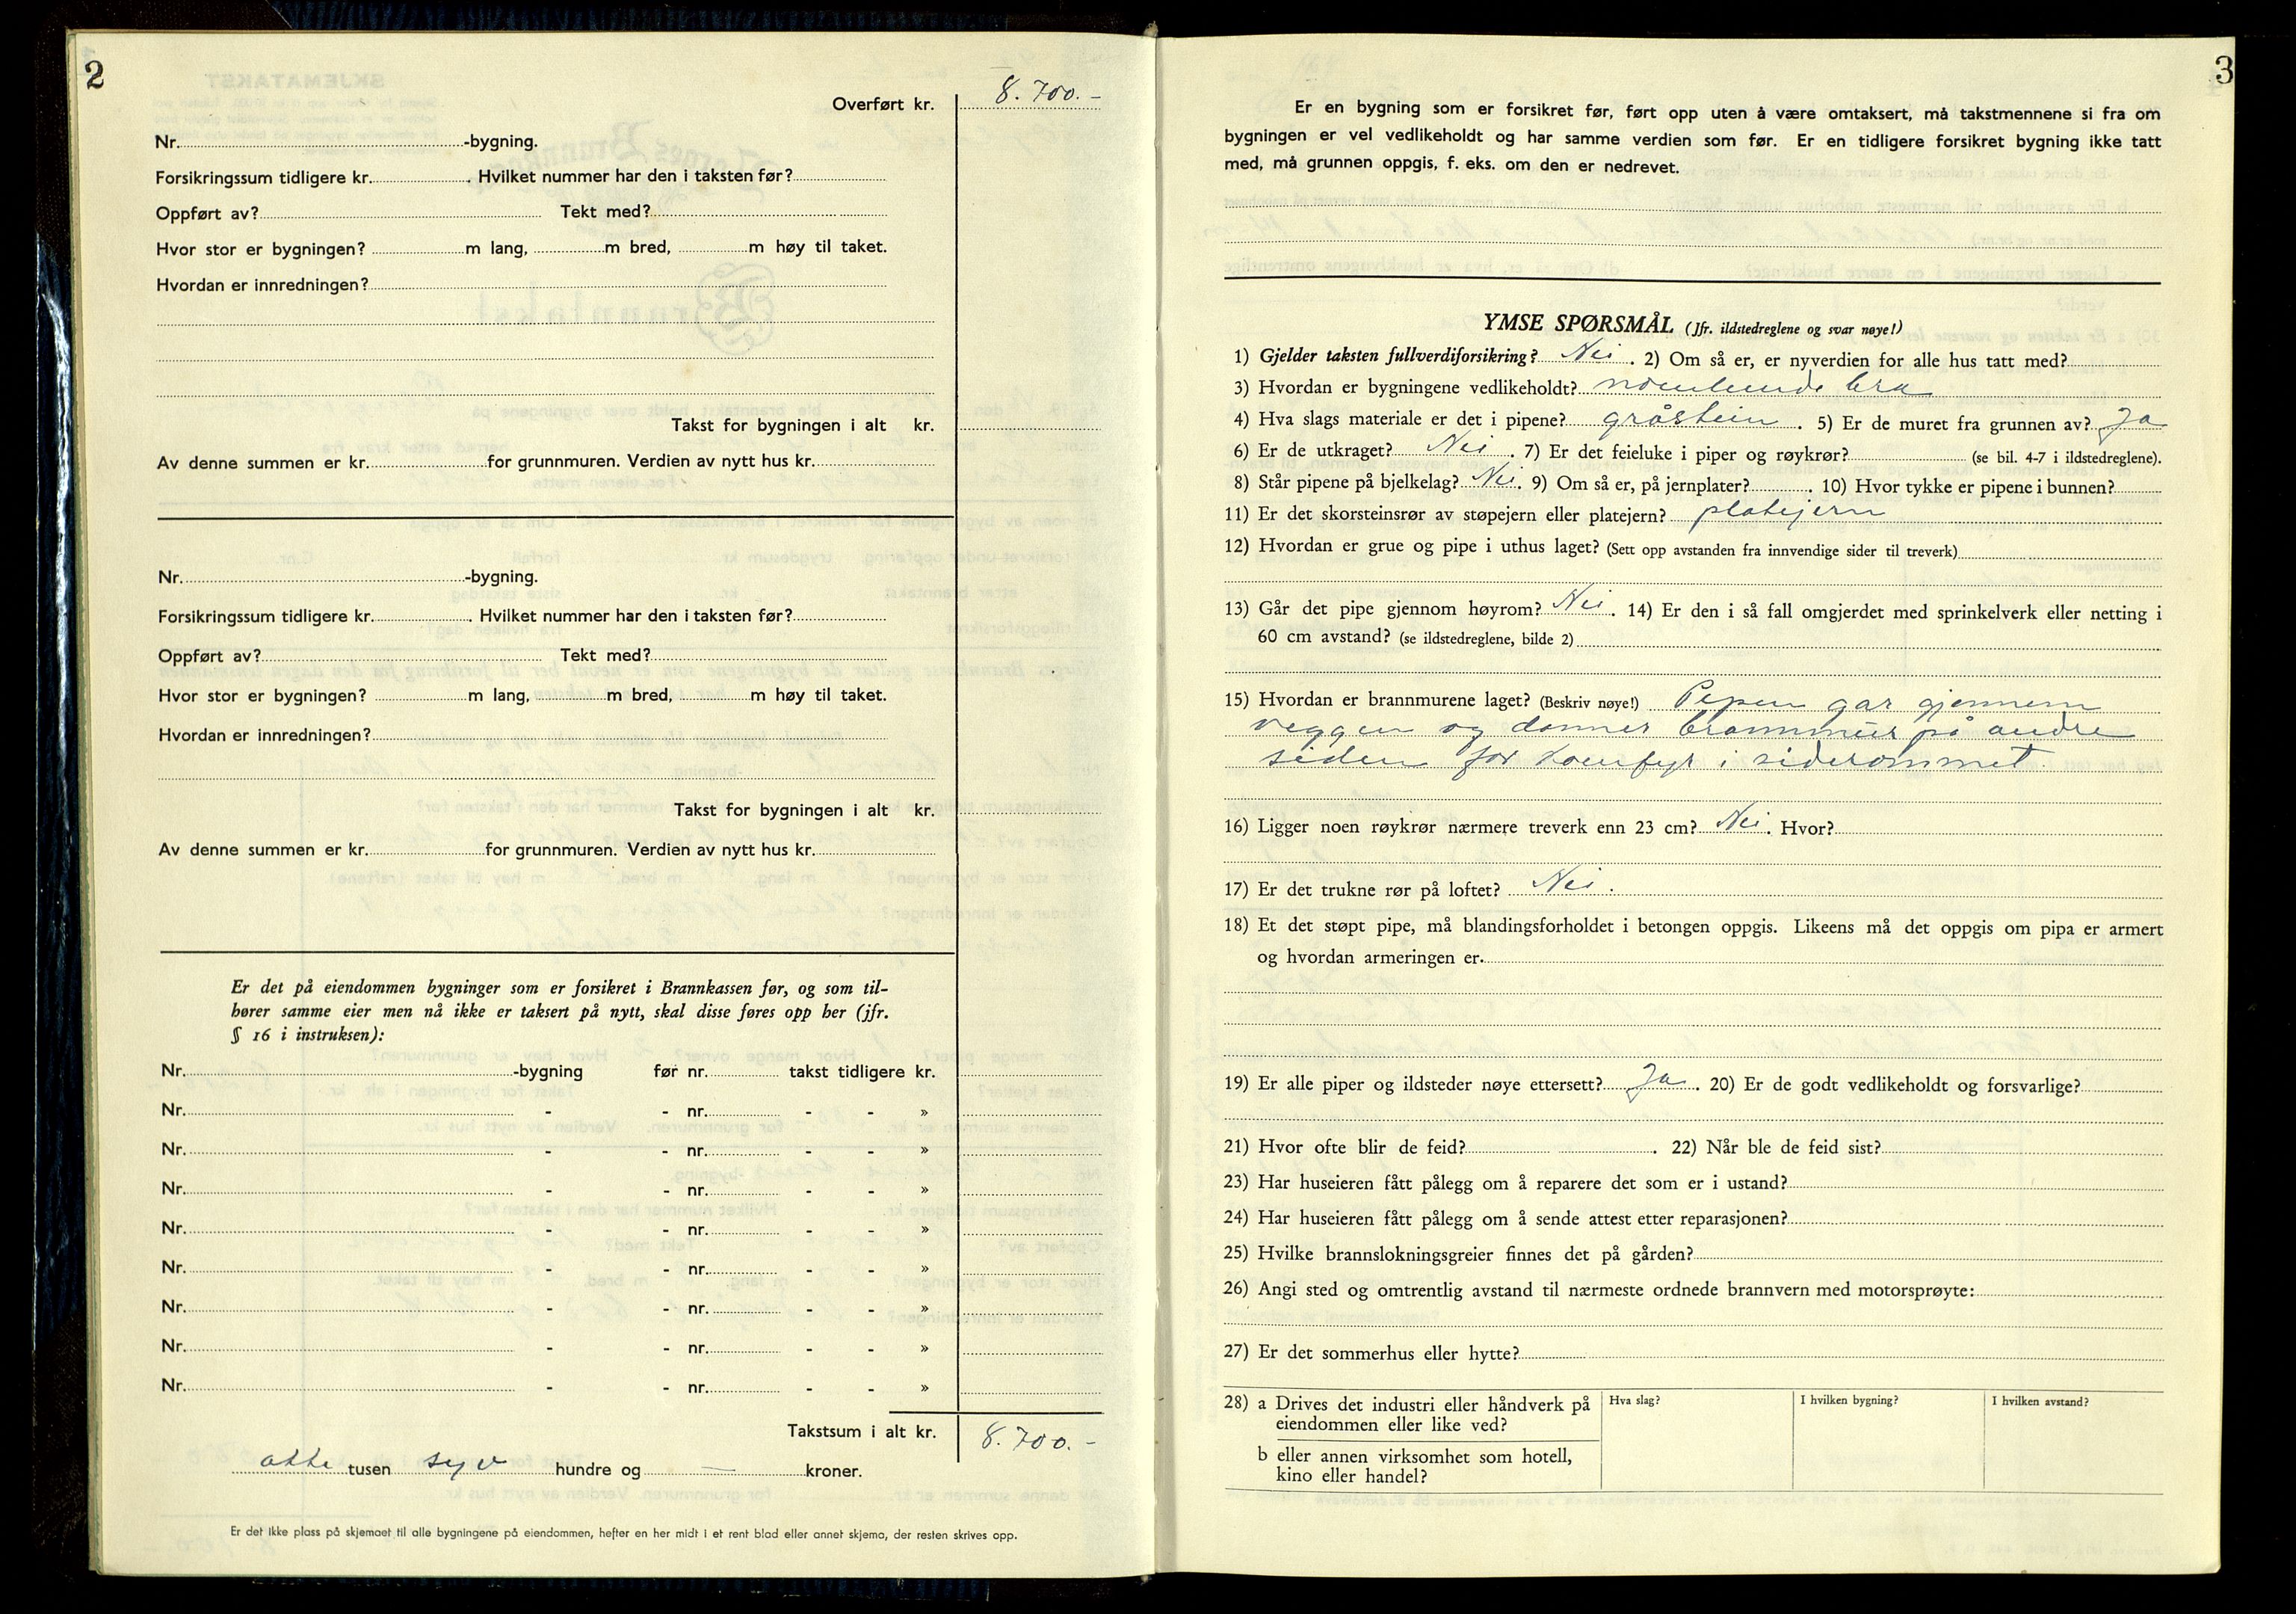 2
Overført kr. 8.700.-
Nr. -bygning.
Forsikringssum tidligere kr. . Hvilket nummer har den i taksten før?
Oppført av? Tekt med?
Hvor stor er bygningen? m lang, m bred, m høy til taket.
Hvordan er innredningen?
Takst for bygningen i alt kr.
Av denne summen er kr. for grunnmuren. Verdien av nytt hus kr.
Nr. -bygning.
Forsikringssum tidligere kr. . Hvilket nummer har den i taksten før?
Oppført av? Tekt med?
Hvor stor er bygningen? m lang, m bred, m høy til taket.
Hvordan er innredningen?
Takst for bygningen i alt kr.
Av denne summen er kr. for grunnmuren. Verdien av nytt hus kr.
Er det på eiendommen bygninger som er forsikret i Brannkassen før, og som til-
hører samme eier men nå ikke er taksert på nytt, skal disse føres opp her (jfr.
§ 16 i instruksen):
Nr. -bygning før nr. takst tidligere kr.
Nr. - - nr. - - »
Nr. - - nr. - - »
Nr. - - nr. - - »
Nr. - - nr. - - »
Nr. - - nr. - - »
Nr. - - nr. - - »
Nr. - - nr. - - »
Nr. - - nr. - - »
Takstsum i alt kr. 8.700.-
otte tusen syv hundre og — kroner.
Er det ikke plass på skjemaet til alle bygningene på eiendommen, hefter en her midt i et rent blad eller annet skjema, der resten skrives opp.
3
Er en bygning som er forsikret før, ført opp uten å være omtaksert, må takstmennene si fra om
bygningen er vel vedlikeholdt og har samme verdien som før. Er en tidligere forsikret bygning ikke tatt
med, må grunnen oppgis, f. eks. om den er nedrevet.
YMSE SPØRSMÅL (Jfr. ildstedreglene og svar nøye!)
1) Gjelder taksten fullverdiforsikring? Nei . 2) Om så er, er nyverdien for alle hus tatt med?
3) Hvordan er bygningene vedlikeholdt? noenlunde bra
4) Hva slags materiale er det i pipene? gråstein . 5) Er de muret fra grunnen av? Ja
6) Er de utkraget? Nei . 7) Er det feieluke i piper og røykrør? (se bil. 4-7 i ildstedreglene).
8) Står pipene på bjelkelag? Nei . 9) Om så er, på jernplater? . 10) Hvor tykke er pipene i bunnen?
11) Er det skorsteinsrør av støpejern eller platejern? platejern
12) Hvordan er grue og pipe i uthus laget? (Sett opp avstanden fra innvendige sider til treverk)
13) Går det pipe gjennom høyrom? Nei . 14) Er den i så fall omgjerdet med sprinkelverk eller netting i
60 cm avstand? (se ildstedreglene, bilde 2)
15) Hvordan er brannmurene laget? (Beskriv nøye!) Pipen går gjennem
veggen og danner brannmur på andre
siden for komfyr i siderommet.
16) Ligger noen røykrør nærmere treverk enn 23 cm? Nei . Hvor?
17) Er det trukne rør på loftet? Nei .
18) Et det støpt pipe, må blandingsforholdet i betongen oppgis. Likeens må det oppgis om pipa er armert
og hvordan armeringen er.
19) Er alle piper og ildsteder nøye ettersett? Ja . 20) Er de godt vedlikeholdt og forsvarlige?
21) Hvor ofte blir de feid? . 22) Når ble de feid sist?
23) Har huseieren fått pålegg om å reparere det som er i ustand?
24) Har huseieren fått pålegg om å sende attest etter reparasjonen?
25) Hvilke brannslokningsgreier finnes det på gården?
26) Angi sted og omtrentlig avstand til nærmeste ordnede brannvern med motorsprøyte:
27) Er det sommerhus eller hytte?
28) a Drives det industri eller håndverk på Hva slag? I hvilken bygning? I hvilken avstand?
eiendommen eller like ved?
b eller annen virksomhet som hotell,
kino eller handel?